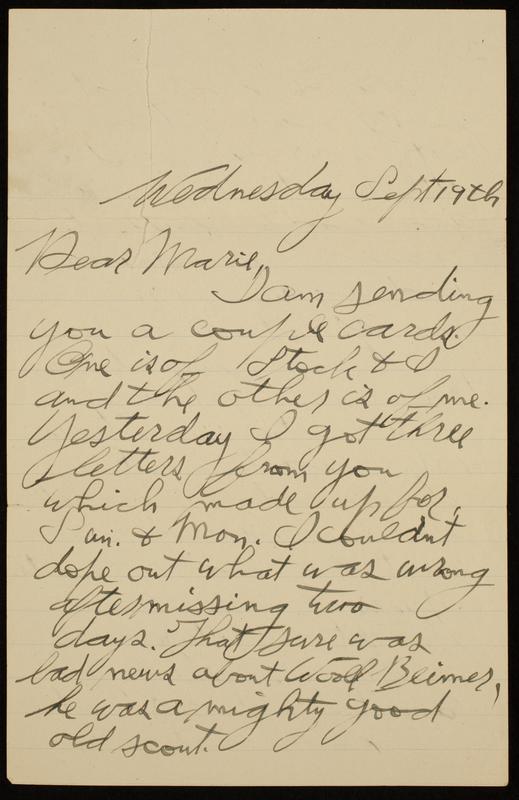 Wednesday Sept 19th
Dear Marie,
I am sending
you a couple cards.
One is of Stock & I
and the other is of me.
Yesterday I got three
letters from you
which made up for
Sun. & Mon. I couldn't
dope out what was wrong
after missing two
days. That sure was
bad news about Beimer,
he was a mighty good
old scout.